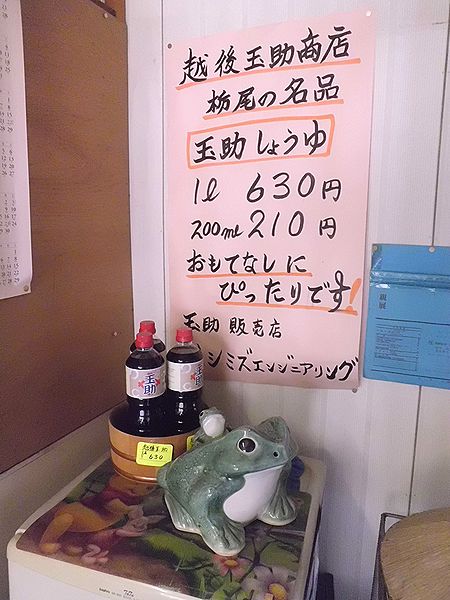 越後玉助商店
栃尾の名品
玉助しょうゆ
1ℓ 630円
200mℓ 210円
おもてなしに
ぴったりです!
玉助 販売店
シミズエンジニアリング
親展
玉助
玉助
630